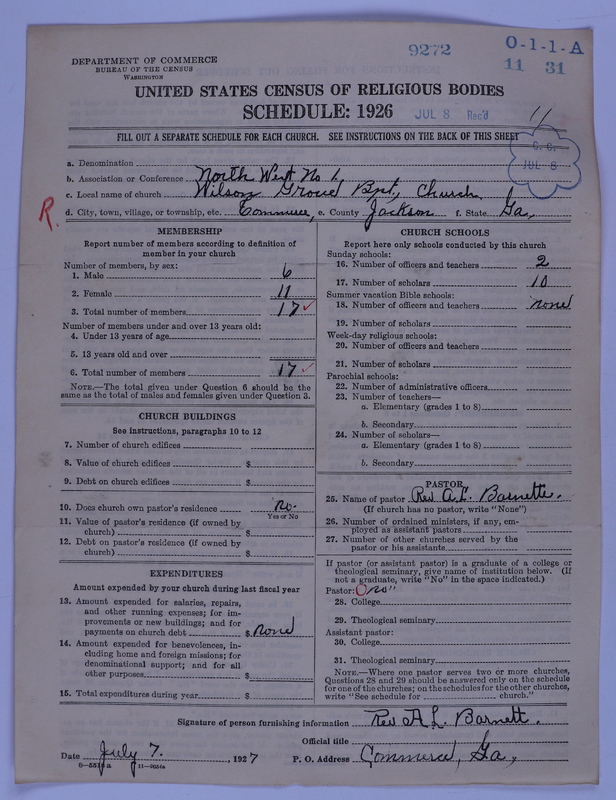 9272
O-1-1-A
11 31
DEPARTMENT OF COMMERCE
BUREAU OF THE CENSUS
WASHINGTON
UNITED STATES CENSUS OF RELIGIOUS BODIES
SCHEDULE: 1926
JUL 8 Rec'd
11
FILL OUT A SEPARATE SCHEDULE FOR EACH CHURCH. SEE INSTRUCTIONS ON THE BACK OF THIS SHEET
JUL 8
a. Denomination
b. Association or Conference North West No 1.
c. Local name of church Wilson Grove Bpt, Church
R.
d. City, town, village, or township, etc. Commerce, e. County Jackson f. State Ga,
MEMBERSHIP
Report number of members according to definition of
member in your church
Number of members, by sex:
1. Male 6
2. Female 11
3. Total number of members 17 ✓
Number of members under and over 13 years old:
4. Under 13 years of age
5. 13 years old and over
6. Total number of members 17 ✓
NOTE.—The total given under Question 6 should be the
same as the total of males and females given under Question 3.
CHURCH BUILDINGS
See instructions, paragraphs 10 to 12
7. Number of church edifices
8. Value of church edifices $
9. Debt on church edifices $
10. Does church own pastor's residence no.
Yes or No
11. Value of pastor's residence (if owned by
church) $
12. Debt on pastor's residence (if owned by
church) $
EXPENDITURES
Amount expended by your church during last fiscal year
13. Amount expended for salaries, repairs,
and other running expenses; for im-
provements or new buildings; and for
payments on church debt $ none
14. Amount expended for benevolences, in-
cluding home and foreign missions; for
denominational support; and for all
other purposes $
15. Total expenditures during year $
CHURCH SCHOOLS
Report here only schools conducted by this church
Sunday schools:
16. Number of officers and teachers 2
17. Number of scholars 10
Summer vacation Bible schools:
18. Number of officers and teachers none
19. Number of scholars
Week-day religious schools:
20. Number of officers and teachers
21. Number of scholars
Parochial schools:
22. Number of administrative officers
23. Number of teachers—
a. Elementary (grades 1 to 8)
b. Secondary
24. Number of scholars—
a. Elementary (grades 1 to 8)
b. Secondary
PASTOR
25. Name of pastor Rev A.L. Barnette.
(If church has no pastor, write "None")
26. Number of ordained ministers, if any, em-
ployed as assistant pastors
27. Number of other churches served by the
pastor or his assistants
If pastor (or assistant pastor) is a graduate of a college or
theological seminary, give name of institution below. (If
not a graduate, write "No" in the space indicated.)
Pastor: no"
28. College
29. Theological seminary
Assistant pastor:
30. College
31. Theological seminary
NOTE.—Where one pastor serves two or more churches,
Questions 28 and 29 should be answered only on the schedule
for one of the churches; on the schedules for the other churches,
write "See schedule for church."
Signature of person furnishing information Rev A.L. Barnett.
Official title
Date July 7. , 1927
P. O. Address Commerce, Ga,